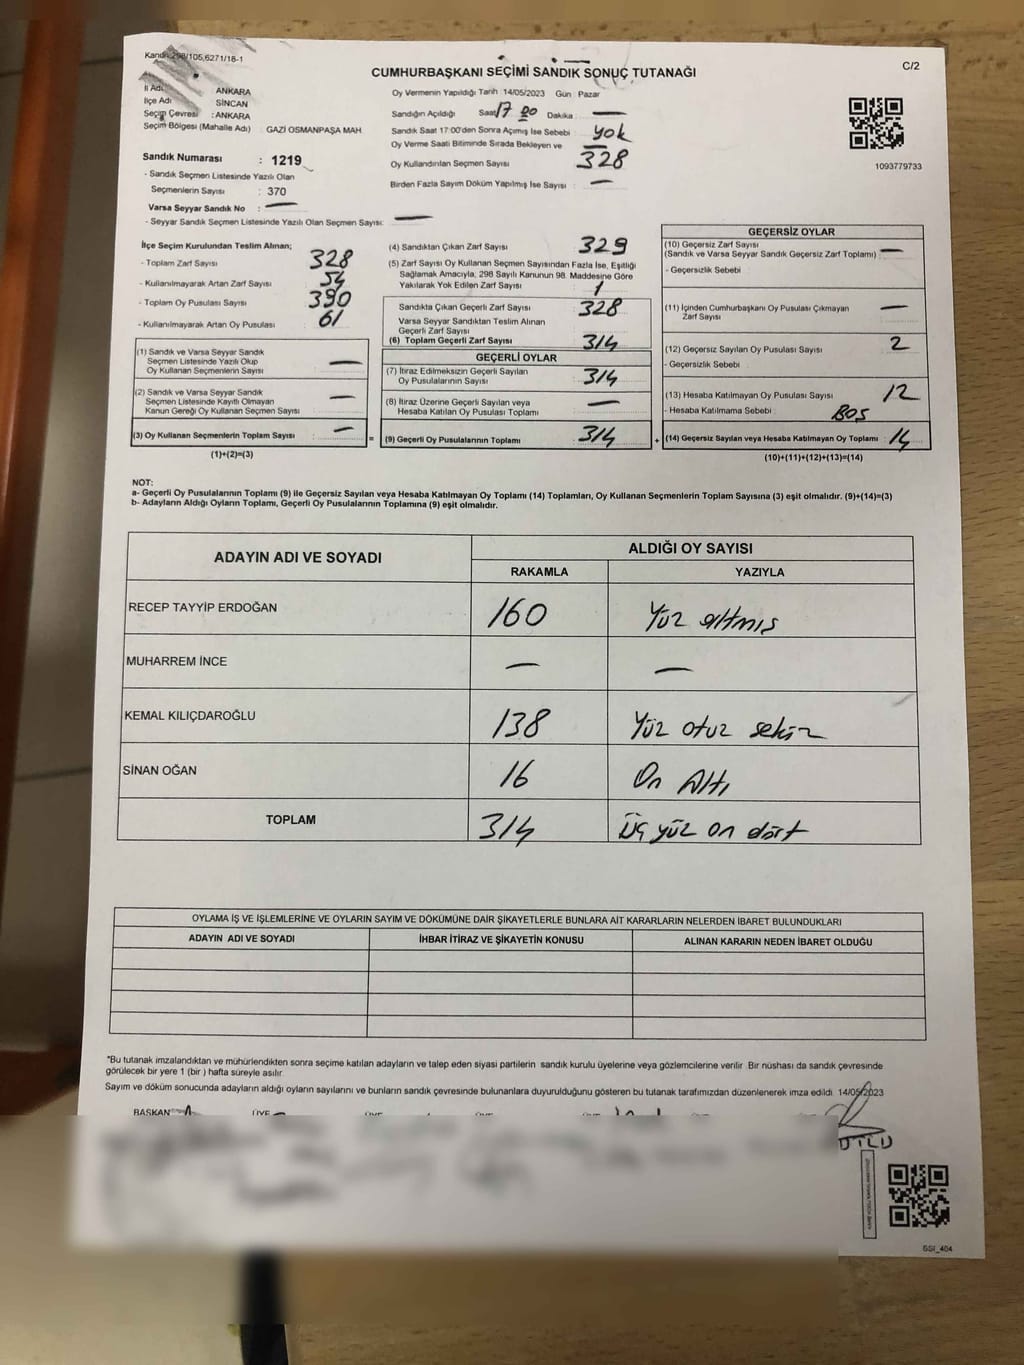 Kanun 298/105,6271/18-1
C/2
CUMHURBAŞKANI SEÇİMİ SANDIK SONUÇ TUTANAĞI
İl Adı : ANKARA
İlçe Adı : SİNCAN
Seçim Çevresi : ANKARA
Seçim Bölgesi (Mahalle Adı) : GAZİ OSMANPAŞA MAH.
Sandık Numarası : 1219
- Sandık Seçmen Listesinde Yazılı Olan
Seçmenlerin Sayısı : 370
Varsa Seyyar Sandık No : —
- Seyyar Sandık Seçmen Listesinde Yazılı Olan Seçmen Sayısı: —
Oy Vermenin Yapıldığı Tarih : 14/05/2023 Gün : Pazar
Sandığın Açıldığı Saat 17 00 Dakika : —
Sandık Saat 17:00'den Sonra Açımış İse Sebebi : yok
Oy Verme Saati Bitiminde Sırada Bekleyen ve
Oy Kullandırılan Seçmen Sayısı 328
Birden Fazla Sayım Döküm Yapılmış İse Sayısı : —
1093779733
İlçe Seçim Kurulundan Teslim Alınan;
- Toplam Zarf Sayısı : 328
- Kullanılmayarak Artan Zarf Sayısı : 54
- Toplam Oy Pusulası Sayısı : 390
- Kullanılmayarak Artan Oy Pusulası : 61
(1) Sandık ve Varsa Seyyar Sandık
Seçmen Listesinde Yazılı Olup
Oy Kullanan Seçmenlerin Sayısı : —
(2) Sandık ve Varsa Seyyar Sandık
Seçmen Listesinde Kayıtlı Olmayan
Kanun Gereği Oy Kullanan Seçmen Sayısı : —
(3) Oy Kullanan Seçmenlerin Toplam Sayısı : —
(1)+(2)=(3)
(4) Sandıktan Çıkan Zarf Sayısı 329
(5) Zarf Sayısı Oy Kullanan Seçmen Sayısından Fazla İse, Eşitliği
Sağlamak Amacıyla, 298 Sayılı Kanunun 98. Maddesine Göre
Yakılarak Yok Edilen Zarf Sayısı : 1
Sandıkta Çıkan Geçerli Zarf Sayısı : 328
Varsa Seyyar Sandıktan Teslim Alınan
Geçerli Zarf Sayısı
(6) Toplam Geçerli Zarf Sayısı : 314
GEÇERLİ OYLAR
(7) İtiraz Edilmeksizin Geçerli Sayılan
Oy Pusulalarının Sayısı : 314
(8) İtiraz Üzerine Geçerli Sayılan veya
Hesaba Katılan Oy Pusulası Toplamı : —
= (9) Geçerli Oy Pusulalarının Toplamı : 314 +
GEÇERSİZ OYLAR
(10) Geçersiz Zarf Sayısı
(Sandık ve Varsa Seyyar Sandık Geçersiz Zarf Toplamı) : —
- Geçersizlik Sebebi :
(11) İçinden Cumhurbaşkanı Oy Pusulası Çıkmayan
Zarf Sayısı : —
(12) Geçersiz Sayılan Oy Pusulası Sayısı : 2
- Geçersizlik Sebebi :
(13) Hesaba Katılmayan Oy Pusulası Sayısı : 12
- Hesaba Katılmama Sebebi : BOŞ
(14) Geçersiz Sayılan veya Hesaba Katılmayan Oy Toplamı : 14
(10)+(11)+(12)+(13)=(14)
NOT:
a- Geçerli Oy Pusulalarının Toplamı (9) ile Geçersiz Sayılan veya Hesaba Katılmayan Oy Toplamı (14) Toplamları, Oy Kullanan Seçmenlerin Toplam Sayısına (3) eşit olmalıdır. (9)+(14)=(3)
b- Adayların Aldığı Oyların Toplamı, Geçerli Oy Pusulalarının Toplamına (9) eşit olmalıdır.
ADAYIN ADI VE SOYADI
ALDIĞI OY SAYISI
RAKAMLA YAZIYLA
RECEP TAYYİP ERDOĞAN 160 Yüz altmış
MUHARREM İNCE — —
KEMAL KILIÇDAROĞLU 138 Yüz otuz sekiz
SİNAN OĞAN 16 On Altı
TOPLAM 314 Üç yüz on dört
OYLAMA İŞ VE İŞLEMLERİNE VE OYLARIN SAYIM VE DÖKÜMÜNE DAİR ŞİKAYETLERLE BUNLARA AİT KARARLARIN NELERDEN İBARET BULUNDUKLARI
ADAYIN ADI VE SOYADI İHBAR İTİRAZ VE ŞİKAYETİN KONUSU ALINAN KARARIN NEDEN İBARET OLDUĞU
*Bu tutanak imzalandıktan ve mühürlendikten sonra seçime katılan adayların ve talep eden siyasi partilerin sandık kurulu üyelerine veya gözlemcilerine verilir. Bir nüshası da sandık çevresinde
görülecek bir yere 1 (bir ) hafta süreyle asılır.
Sayım ve döküm sonucunda adayların aldığı oyların sayılarını ve bunların sandık çevresinde bulunanlara duyurulduğunu gösteren bu tutanak tarafımızdan düzenlenerek imza edildi. 14/05/2023
BAŞKAN ÜYE
GSI_404